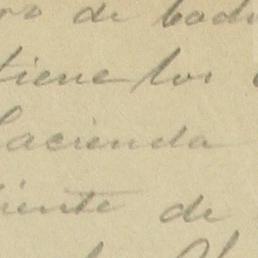 ro de bad
tiene los
Hacienda
iente de